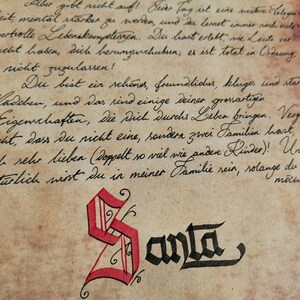 Aber gibt nicht auf! Jeder Tag ist eine weitere
mental stärker zu werden, und du lernst immer noch
wertvolle Lebenskompetenzen. Du hast erlebt, wie Leute
haben, dich herumzuschubsen; es ist total in Ordnung,
nicht zuzulassen!
Du bist ein schönes, freundliches, kluges und
Mädchen, und das sind einige deiner grossartigen
Eigenschaften, die Dich durchs Leben bringen.
dass du nicht eine, sondern zwei Familien hast,
sehr lieben (doppelt so viel wie andere Kinder)!
natürlich wirst du in meiner Familie sein, solange du
Santa